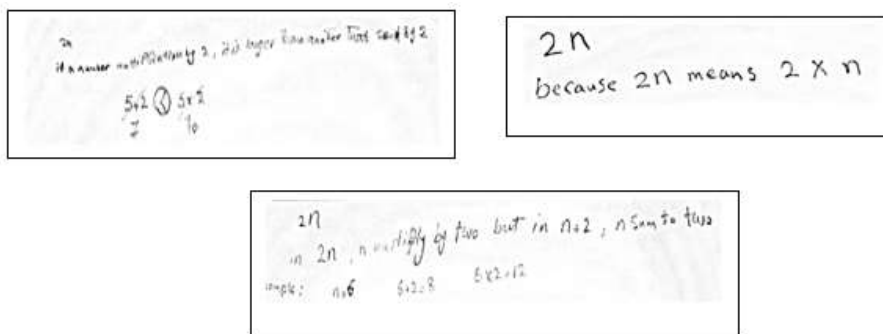 2n
If a number multiplication by 2, it is larger than number that sum by 2
5+2 < 5×2
7 10
2n
because 2n means 2 × n
2n
in 2n, n multiply by two but in n+2, n sum to two
n=6 6+2=8 6×2=12